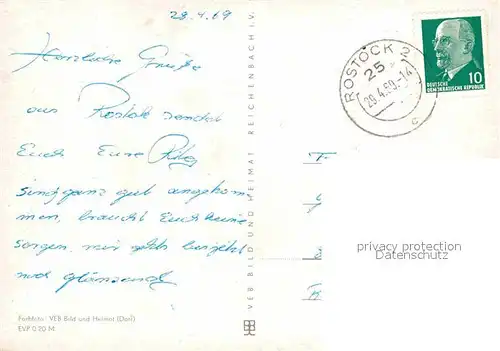 28.4.69
Herzliche Grüße
aus Rostock sendet
Euch Eure
sind ganz gut angekom-
men, braucht Euch keine
Sorgen, mir geht's
noch glänzend
Farbfoto: VEB Bild und Heimat (Darr)
EVP 0.20 M
VEB BILD UND HEIMAT REICHENBACH i. V.
ROSTOCK 2
25
29.4.69.-14
c
DEUTSCHE
DEMOKRATISCHE REPUBLIK
10
privacy protection
Datenschutz